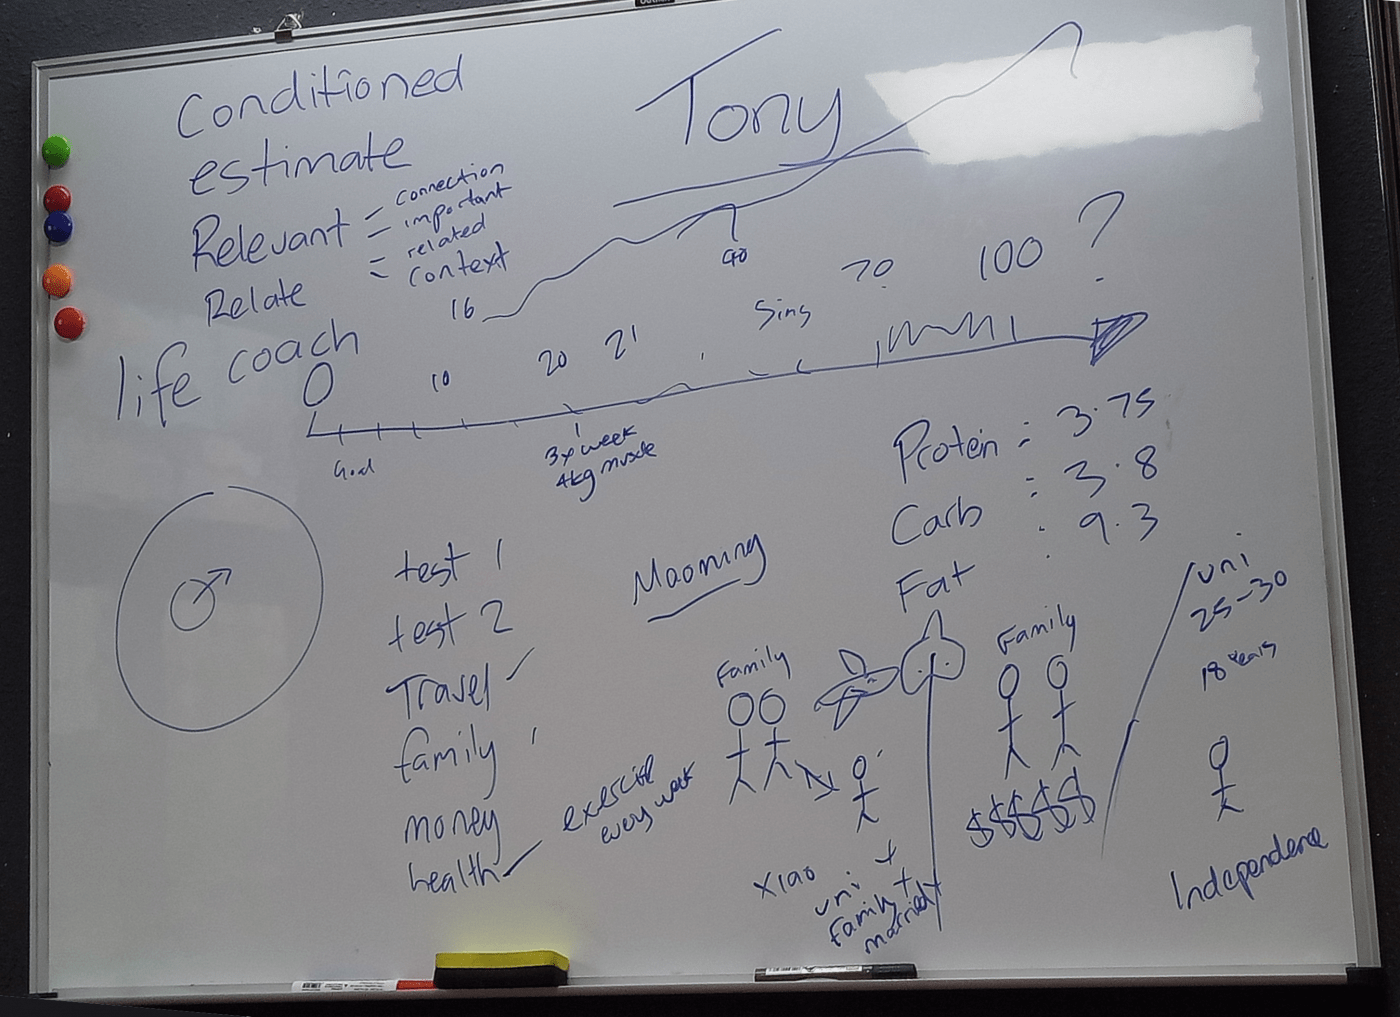 Conditioned
estimate
Relevant = connection
= important
= related
Relate = context
life coach
Tony
16
40
0
10
20
21
Sing
70
100
?
Goal
3x week
4kg muscle
Protein : 3.75
Carb : 3.8
Fat : 9.3
test 1
test 2
Travel ✓
family
money
health ✓
exercise
every week
Maoming
Family
Xiao
uni +
Family +
married
Family
$$$$$
uni
25-30
18 years
Independence